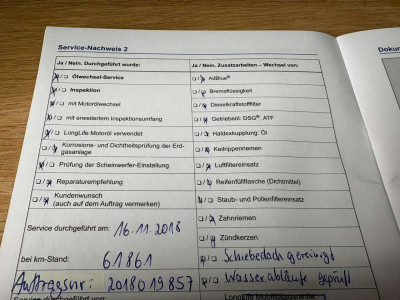 Service-Nachweis 2
Ja / Nein. Durchgeführt wurde:
Ölwechsel-Service
Inspektion
mit Motorölwechsel
mit erweitertem Inspektionsumfang
LongLife Motoröl verwendet
Korrosions- und Dichtheitsprüfung der Erd-
gasanlage
Prüfung der Scheinwerfer-Einstellung
Reparaturempfehlung
Kundenwunsch
(auch auf dem Auftrag vermerken)
Service durchgeführt am: 16.11.2018
bei km-Stand: 61861
Auftragsnr: 2018019857
Service durchgeführt durch:
Ja / Nein. Zusatzarbeiten – Wechsel von:
AdBlue®
Bremsflüssigkeit
Dieselkraftstofffilter
Getriebeöl: DSG®, ATF
Haldexkupplung: Öl
Keilrippenriemen
Luftfiltereinsatz
Reifenfüllflasche (Dichtmittel)
Staub- und Pollenfiltereinsatz
Zahnriemen
Zündkerzen
Schiebedach gereinigt
Wasserabläufe geprüft
LongLife Mobilitätsgarantie
Dokun